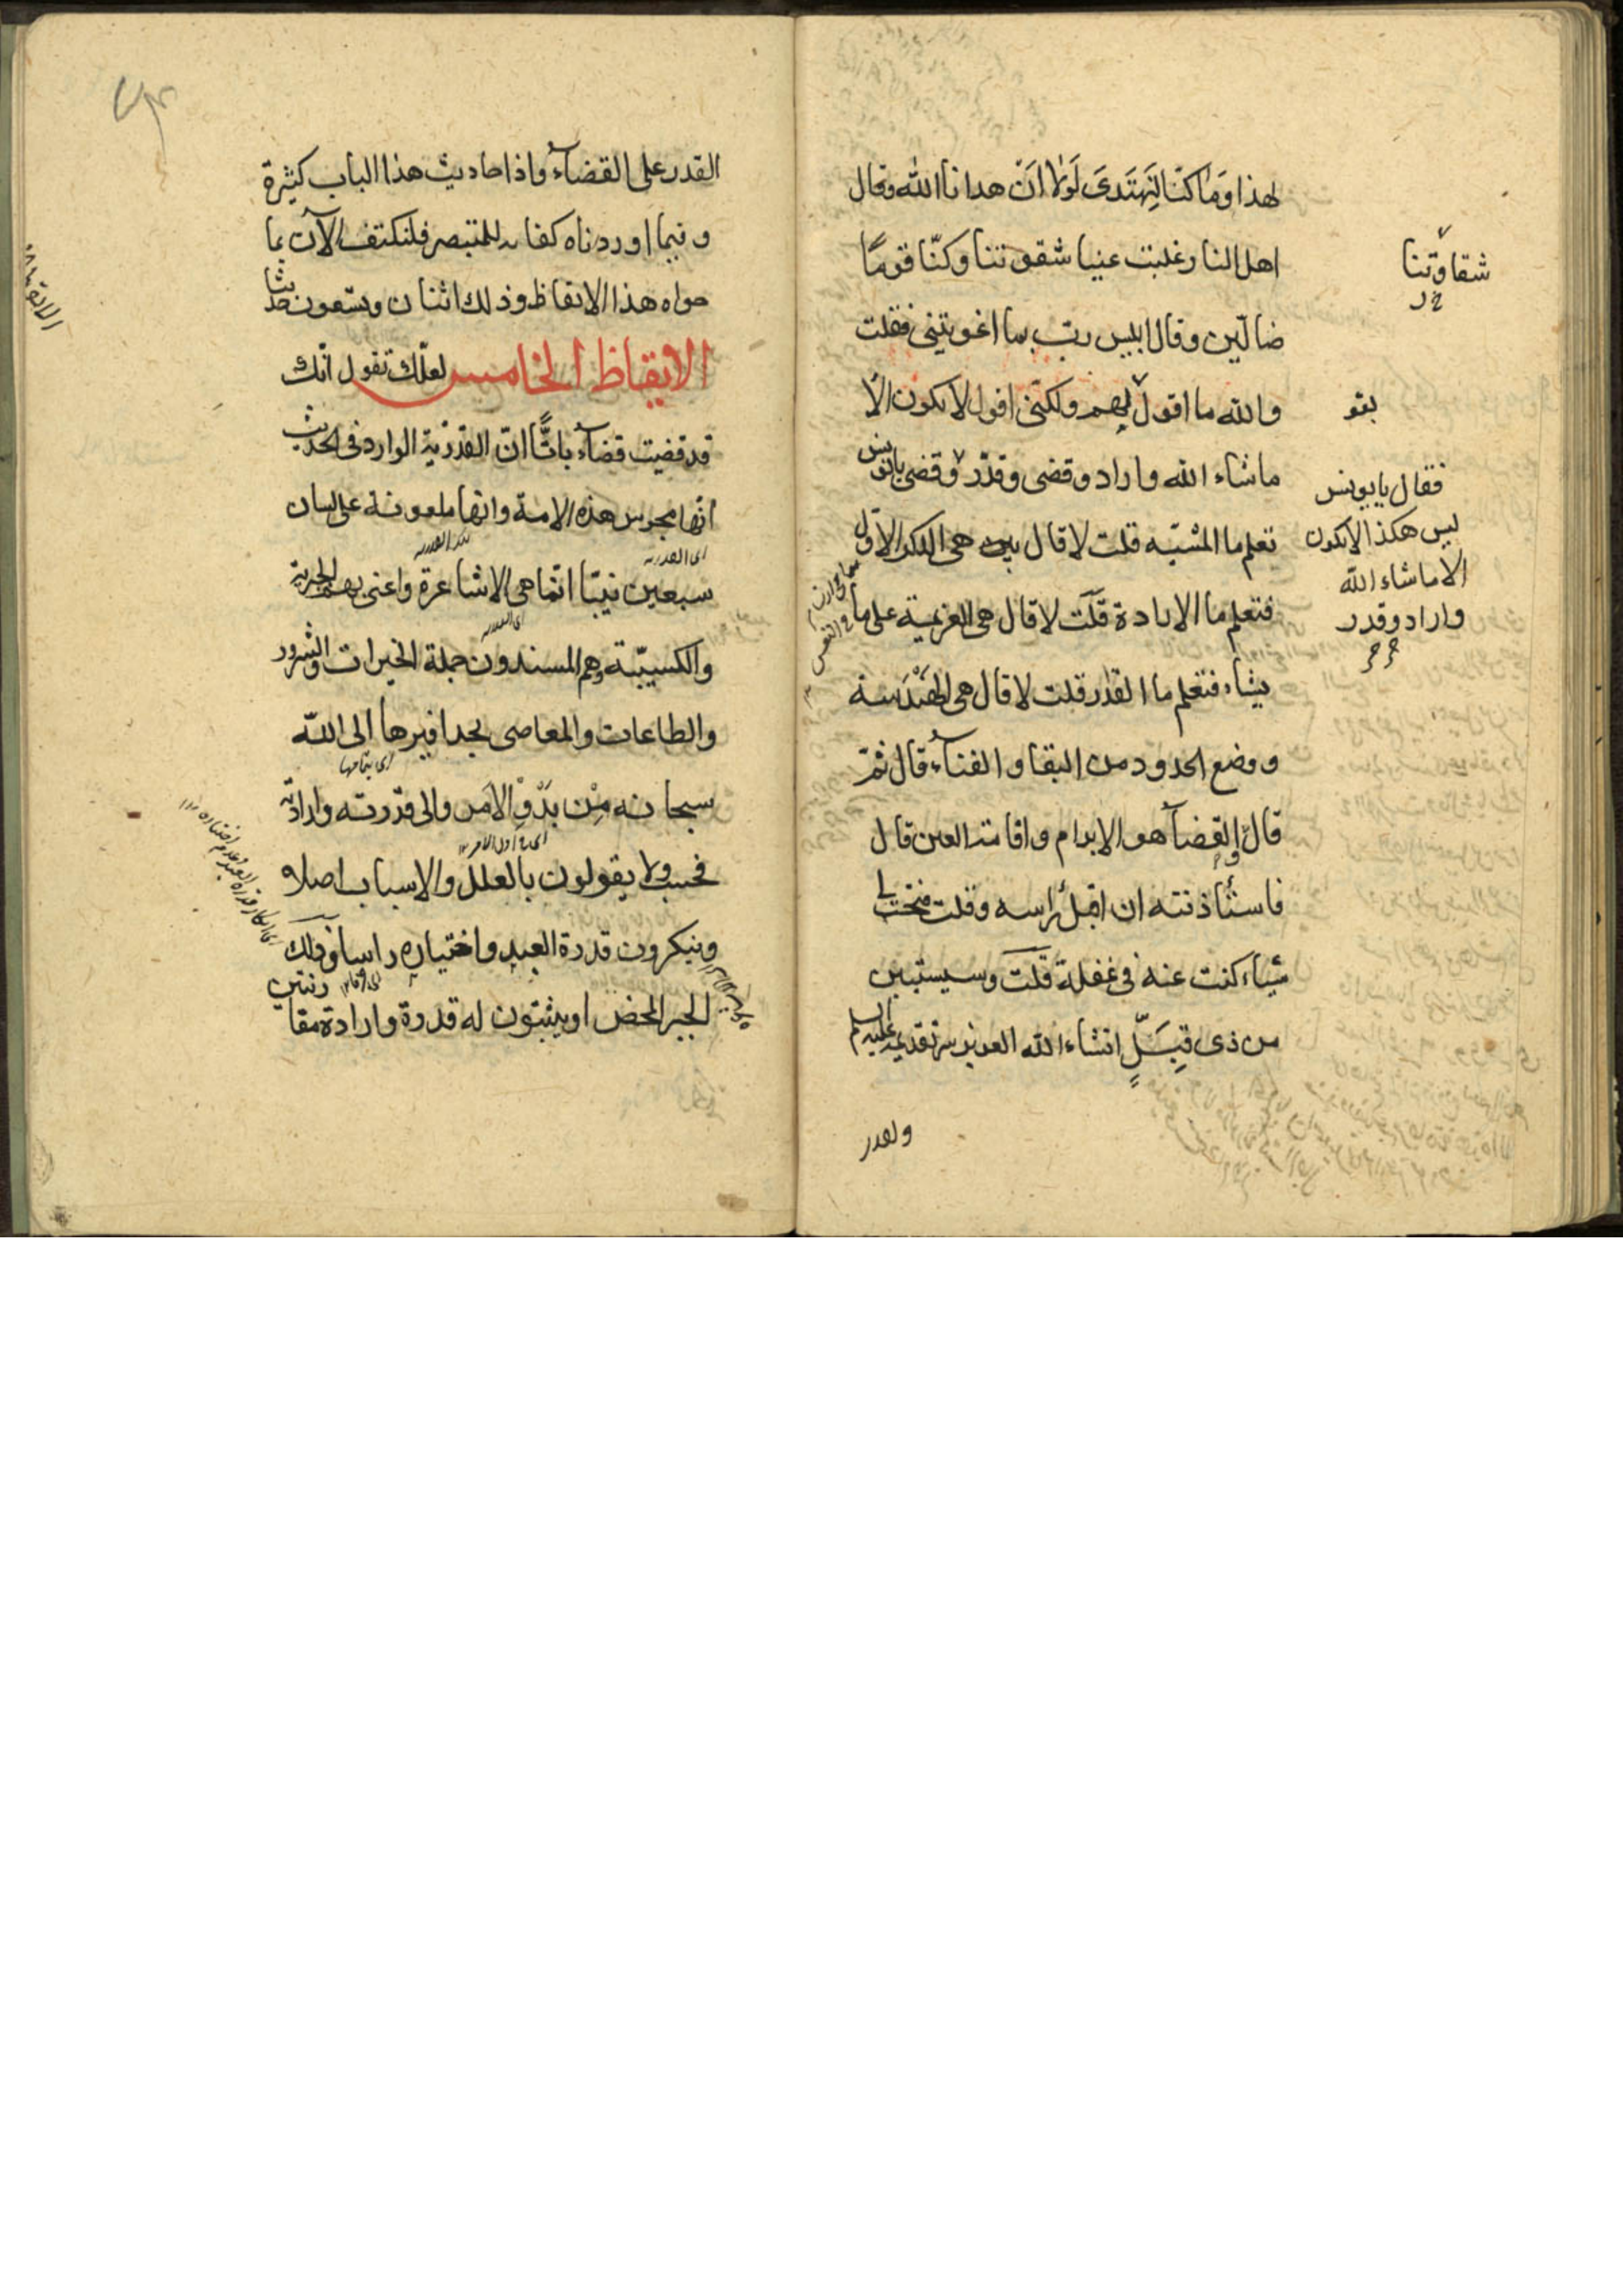 لهذا وَمَا كنّا لِنَهتَدىَ لَولا اَنْ هدانا الله وقال
اهل النار غلبت علينا شقوتنا وكنّا قومًا
ضالّين وقال ابليس ربّ بما اغويتنى فقلت
والله ما اقول بقولهم ولكنّى اقول لا يكون الّا
ما شاء الله واراد وقضى وقدّر وقضى يا يونس
تعلم ما المشيّه قلت لا قال هى الذكر الاوّل
فتعلم ما الارادة قلت لا قال هى العزيمة على ما
يشاء فتعلم ما القدر قلت لا قال هى الهَنْدَسة
ووضع الحدود من البقا والفنآء قال ثمّ
قال والقضآ هو الابرام واقامة العين قال
فاستأذنته ان اقبل راسه وقلت فتحت لى
شيًاء كنت عنه فى غفلة قلت وسيستبين
من ذى قِبَلٍ انشاء الله العزيز سرّ تقديمه عليه السلم
شقاوتنا
خ ر
بقو
فقال يا يونس
ليس هكذا لا يكون
الا ما شاء الله
واراد وقدر
ولقدر
القدر على القضآء واذ احاديث هذا الباب كثيرة
وفيما اوردناه كفاية للمتبصر فلنكتف الآن بما
حواه هذا الايقاظ وذلك اثنان وتسعون حديثا
الايقاظ الخامس لعلّك تقول انّك
قد قضيت قضآء باتًّا انّ القدريّة الوارد فى الحديث
انّها مجوس هذه الامة وانها ملعونة على لسان
اى القدريه
سبعين نبيّا انّما هى الاشاعرة واعنى بهم الجبرية
والكسبيّة وهم المسندون جملة الخيرات والشرور
والطاعات والمعاصى بحذافيرها الى الله
اى بتمامها
سبحانه مِنْ بَدْوِ الاَمر والى قدرته وارادته
اى من اول الامر
فحسب ولا يقولون بالعلل والاسباب اصلا
وينكرون قدرة العبد واختياره راسا وذلك
الجبر المحض او يثبتون له قدرة وارادة مقارنتين